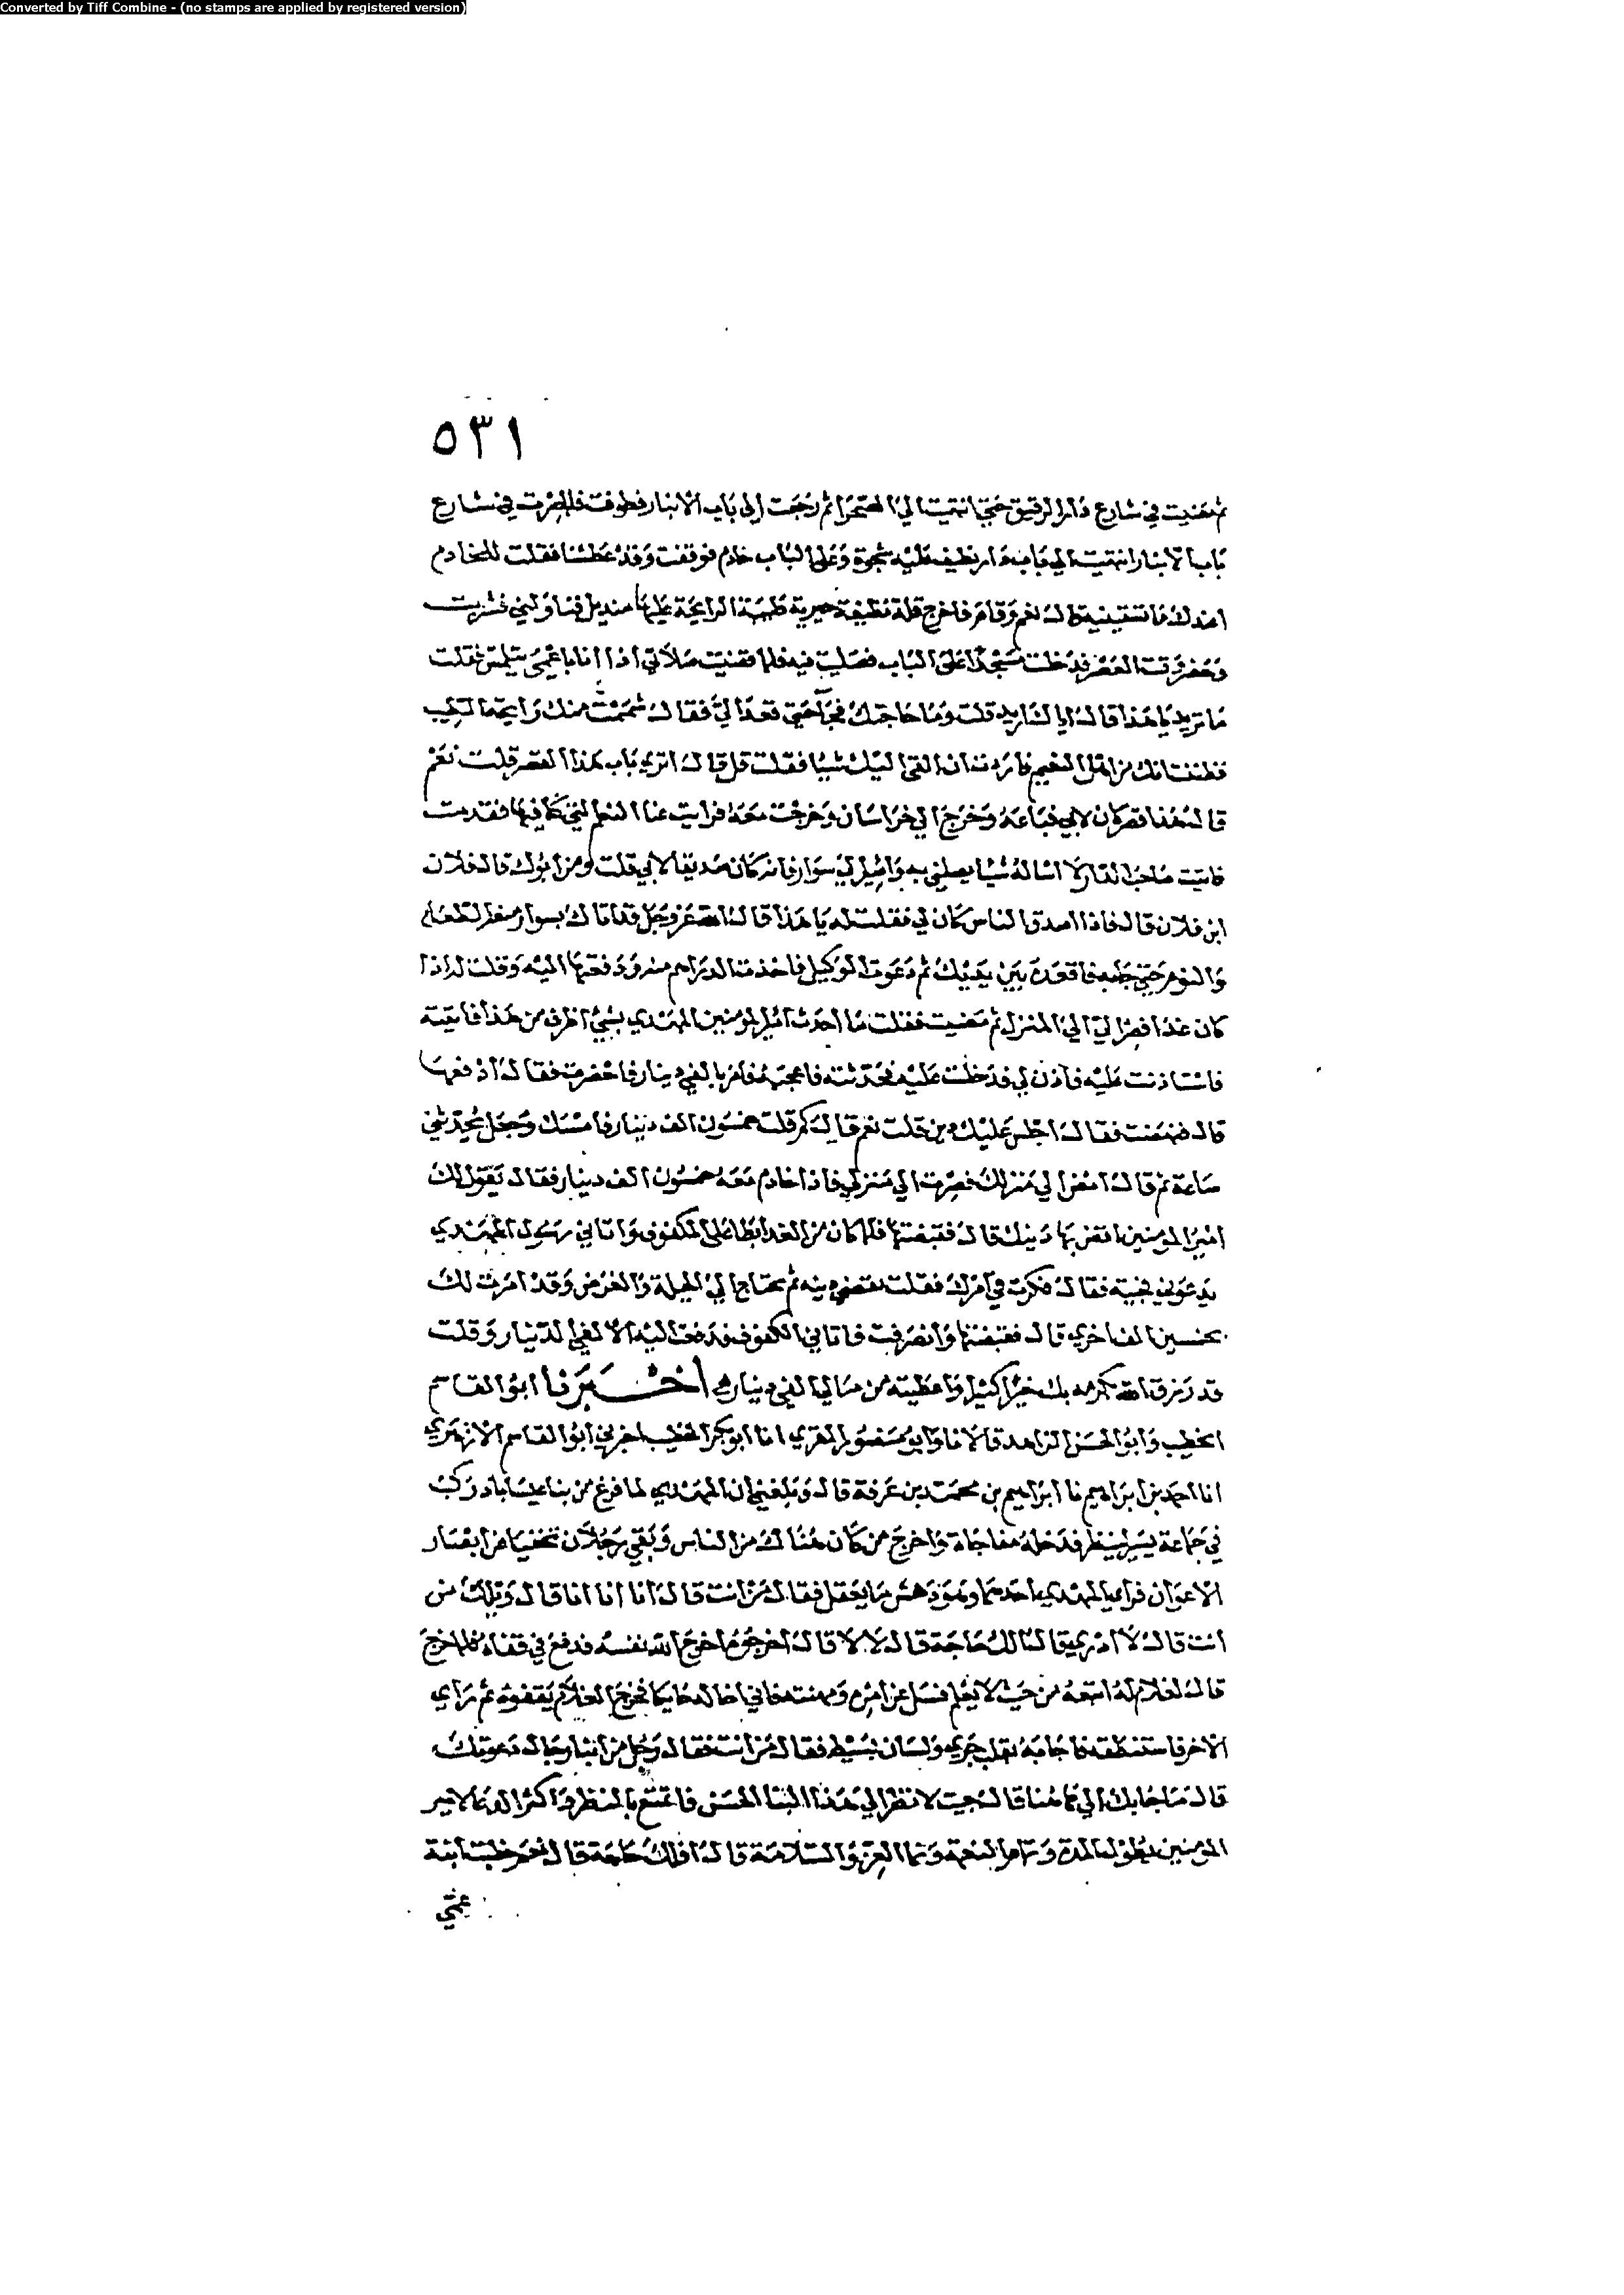 Converted by Tiff Combine - (no stamps are applied by registered version)
٥٣١
ثم مضيت في شارع دار الرقيق حتى انتهيت الى الصحرا ثم رجعت إلى باب الانبار فطوفت فلما صرت في شارع
باب الانبار انتهيت الى باب دار نظيف عليه شجرة وعلى الباب خادم فوقفت وقد عطشنا فقلت للخادم
اعندك ما تسقينيه قال نعم وقام فاخرج قلة نظيفة حيرية طيبة الرايحة عليها منديل فناولني فشربت
وحضر وقت العصر فدخلت مسجدا على الباب فصليت فيه فلما قضيت صلاتي اذا انا باعمى يتلمس فقلت
ما تريد يا هذا قال ايا لك اريد قلت وما حاجتك فجا حتى قعد الي فقال شممت منك رايحة الطيب
فظننت انك من اهل النعيم فاردت ان القي اليك شيا فقلت قل قال اترى باب هذا القصر قلت نعم
قال هذا قصر كان لابي فباعه وخرج الى خراسان وخرجت معه فزالت عنا النعم التي كنا فيها فقدمت
فاتيت صاحب الدار لا اساله شيا يصلني به واصير الى سوار فانه كان صديقا لابي قلت ومن ابوك قال فلان
ابن فلان قال فاذا اصدق الناس كان لي فقلت له يا هذا قال الله عز وجل قد اتاك بسوار منعه الطعام
والنوم حتى جا به فاقعده بين يديك ثم دعوت الوكيل فاخذت الدراهم منه ودفعتها اليه وقلت له اذا
كان غدا فصر الي الى المنزل ثم مضيت فقلت ما احدث امير المومنين المهدي بشي اظرف من هذا فاتيته
فاستاذنت عليه فاذن لي فدخلت عليه فحدثته فاعجبه فامر بالفي دينار فاحضرت فقال ادفعها
قال فنهضت فقال اجلس عليك دين قلت نعم قال كم قلت خمسون الف دينار فامسك وجعل يحدثني
ساعة ثم قال امض الى منزلك فصرت الى منزلي فاذا خادم معه خمسون الف دينار فقال يقول لك
امير المومنين اقض بها دينك قال فقبضتها فلما كان من الغد ابطا على المكفوف واتاني رسول المهدي
يدعوني فجيته فقال فكرت في امرك فقلت يقضي دينه ثم يحتاج الى الحيلة والقرض وقد امرت لك
بخمسين الفا اخرى قال فقبضتها وانصرفت فاتاني المكفوف فدفعت اليه الالفي الدينار وقلت
قد رزق الله بكرمه بك خيرا كثيرا واعطيته من مالي الفي دينار اخبرنا ابو القاسم
الخطيب وابو الحسن الزاهد قالا نا وابو منصور المقري انا ابو بكر الخطيب اخبرني ابو القاسم الازهري
انا احمد بن ابراهيم نا ابراهيم بن محمد بن عرفة قال وبلغني ان المهدي لما فرغ من بنا عيساباد ركب
في جماعة يسير لينظر فدخله مفاجاة واخرج من كان هناك من الناس وبقي رجلان خفيا عن ابصار
الاعوان فراى المهدي احدهما وهو دهش ما يعقل فقال من انت قال انا انا انا قال ويلك من
انت قال لا ادري قال الك حاجة قال لا لا قال اخرجوه اخرج الله نفسه فدفع في قفاه فلما خرج
قال لغلام له اتبعه من حيث لا يعلم فسل عن امره ومهنته فاني اخاله حايكا فخرج الغلام يقفوه ثم راى
الاخر فاستنطقه فاجابه بقلب جري ولسان بسيط فقال من انت فقال رجل من ابنا رجال دعوتك
قال ما جا بك الى هاهنا قال جيت لانظر الى هذا البنا الحسن فاتمتع بالنظر واكثر الدعا لامير
المومنين بطول المدة وتمام النعمة ونما العز والسلامة قال افلك حاجة قال نعم خطبت ابنة
عمي